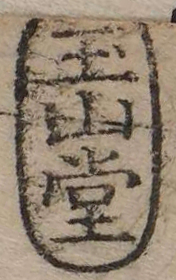 玉山堂